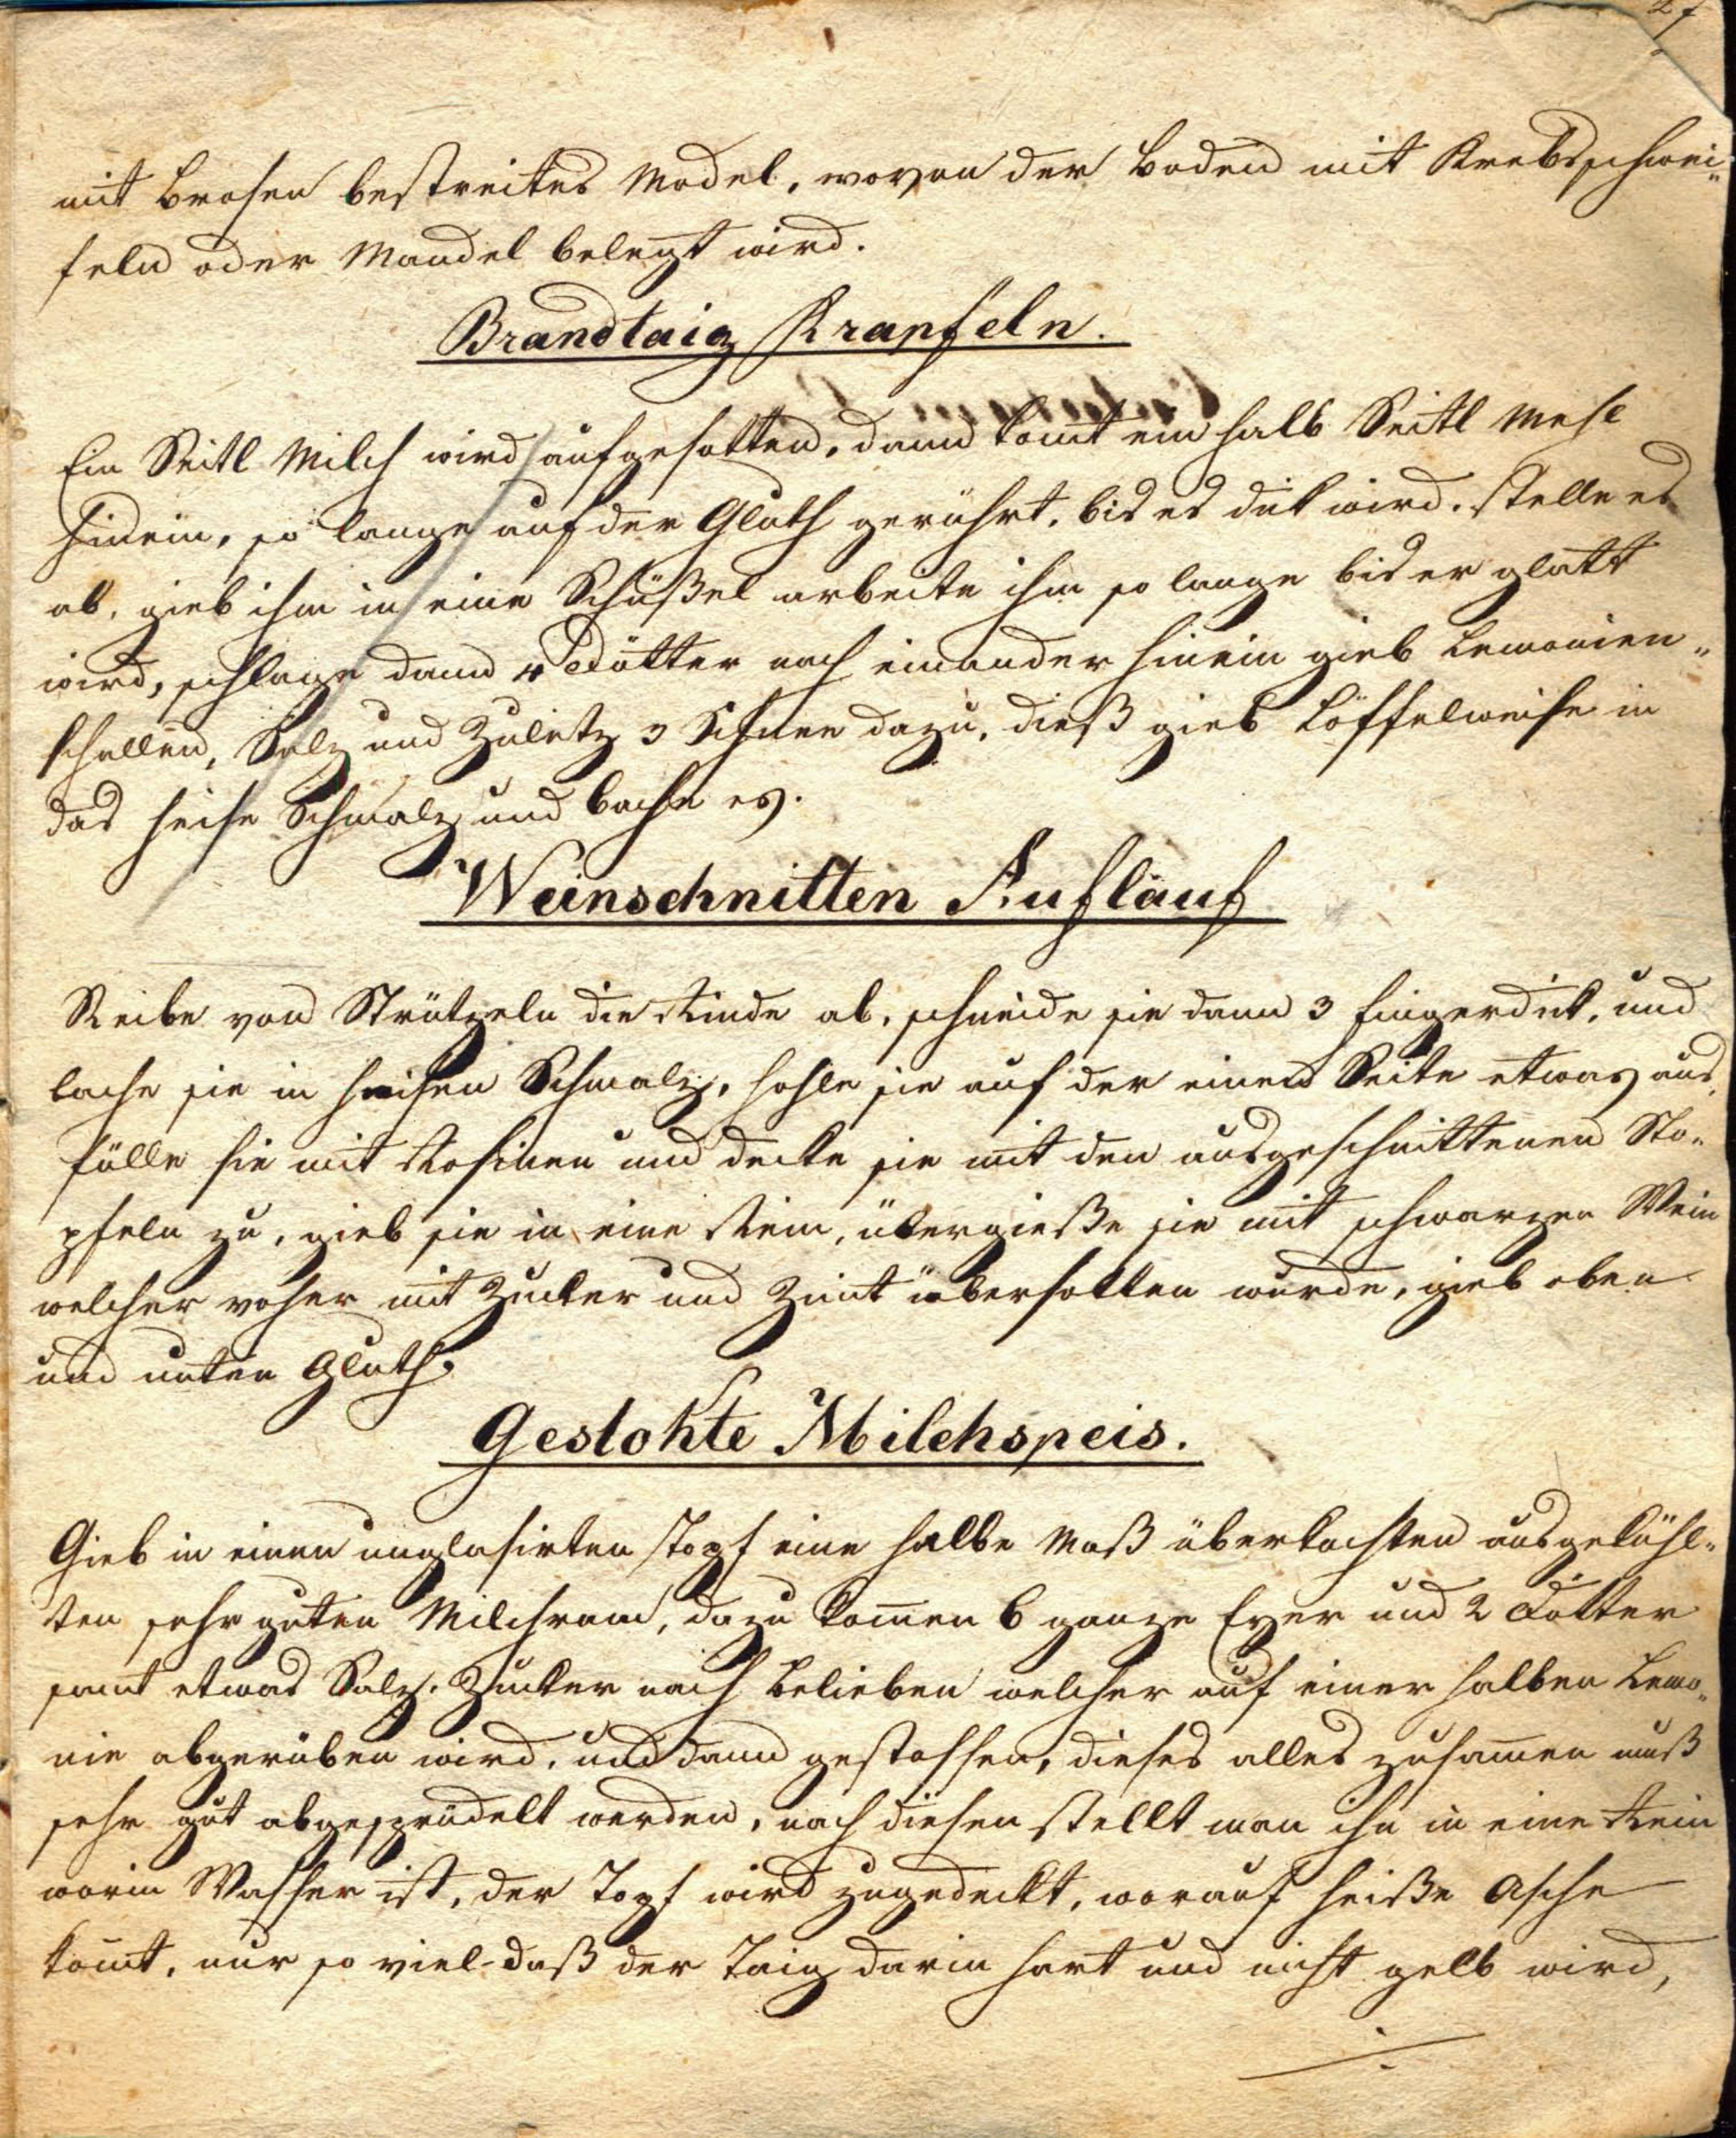 mit Brosen bestreites Model, wovon der Boden mit Krebsschwei„
feln oder Mandel belegt wird.
Brandtaig Krapfeln.
Ein Seitl Milch wird aufgesotten, dann kom̄t ein halb Seitl Mehl
hinein, so lange auf der Gluth gerührt, bis es dik wird. stelle es
ab, gieb ihm in eine Schüßel arbeite ihm so lange bis er glatt
wird, schlage dann 4 Dötter nach einander hinein gieb Lemonien„
schallen, Salz und Zuletz 3 Schnee dazu, dieß gieb Löffelweise in
das heise Schmalz und bache es.
Weinschnitten Auflauf
Reibe von Strützeln die Rinde ab, schneide sie dann 3 fingerdik, und
bache sie in heisen Schmalz, hohle sie auf der einen Seite etwas aus,
fülle sie mit Rosinen und decke sie mit den ausgeschnittenen Sto„
pfeln zu, gieb sie in eine Rein, übergieße sie mit schwarzen Wein
welcher voher mit Zucker und Zimt übersotten wurde, gieb oben
und unten Gluth.
Gestokte Milchspeis.
Gieb in einen unglasirten Topf eine halbe Maß überkochten ausgekühl„
ten sehr guten Milchram, dazu kom̄en 6 ganze Eyer und 2 Dötter
samt etwas Salz. Zucker nach Belieben welcher auf einer halben Lemo„
nie abgerüben wird, und dann gestossen, dieses alles zusam̄en muß
sehr gut abgesprüdelt werden, nach diesen stellt man ihn in eine Rein
worin Wasser ist, der Topf wird zugedeckt, worauf heiße Asche
kom̄t, nur so viel daß der Taig darin hart und nicht gelb wird,